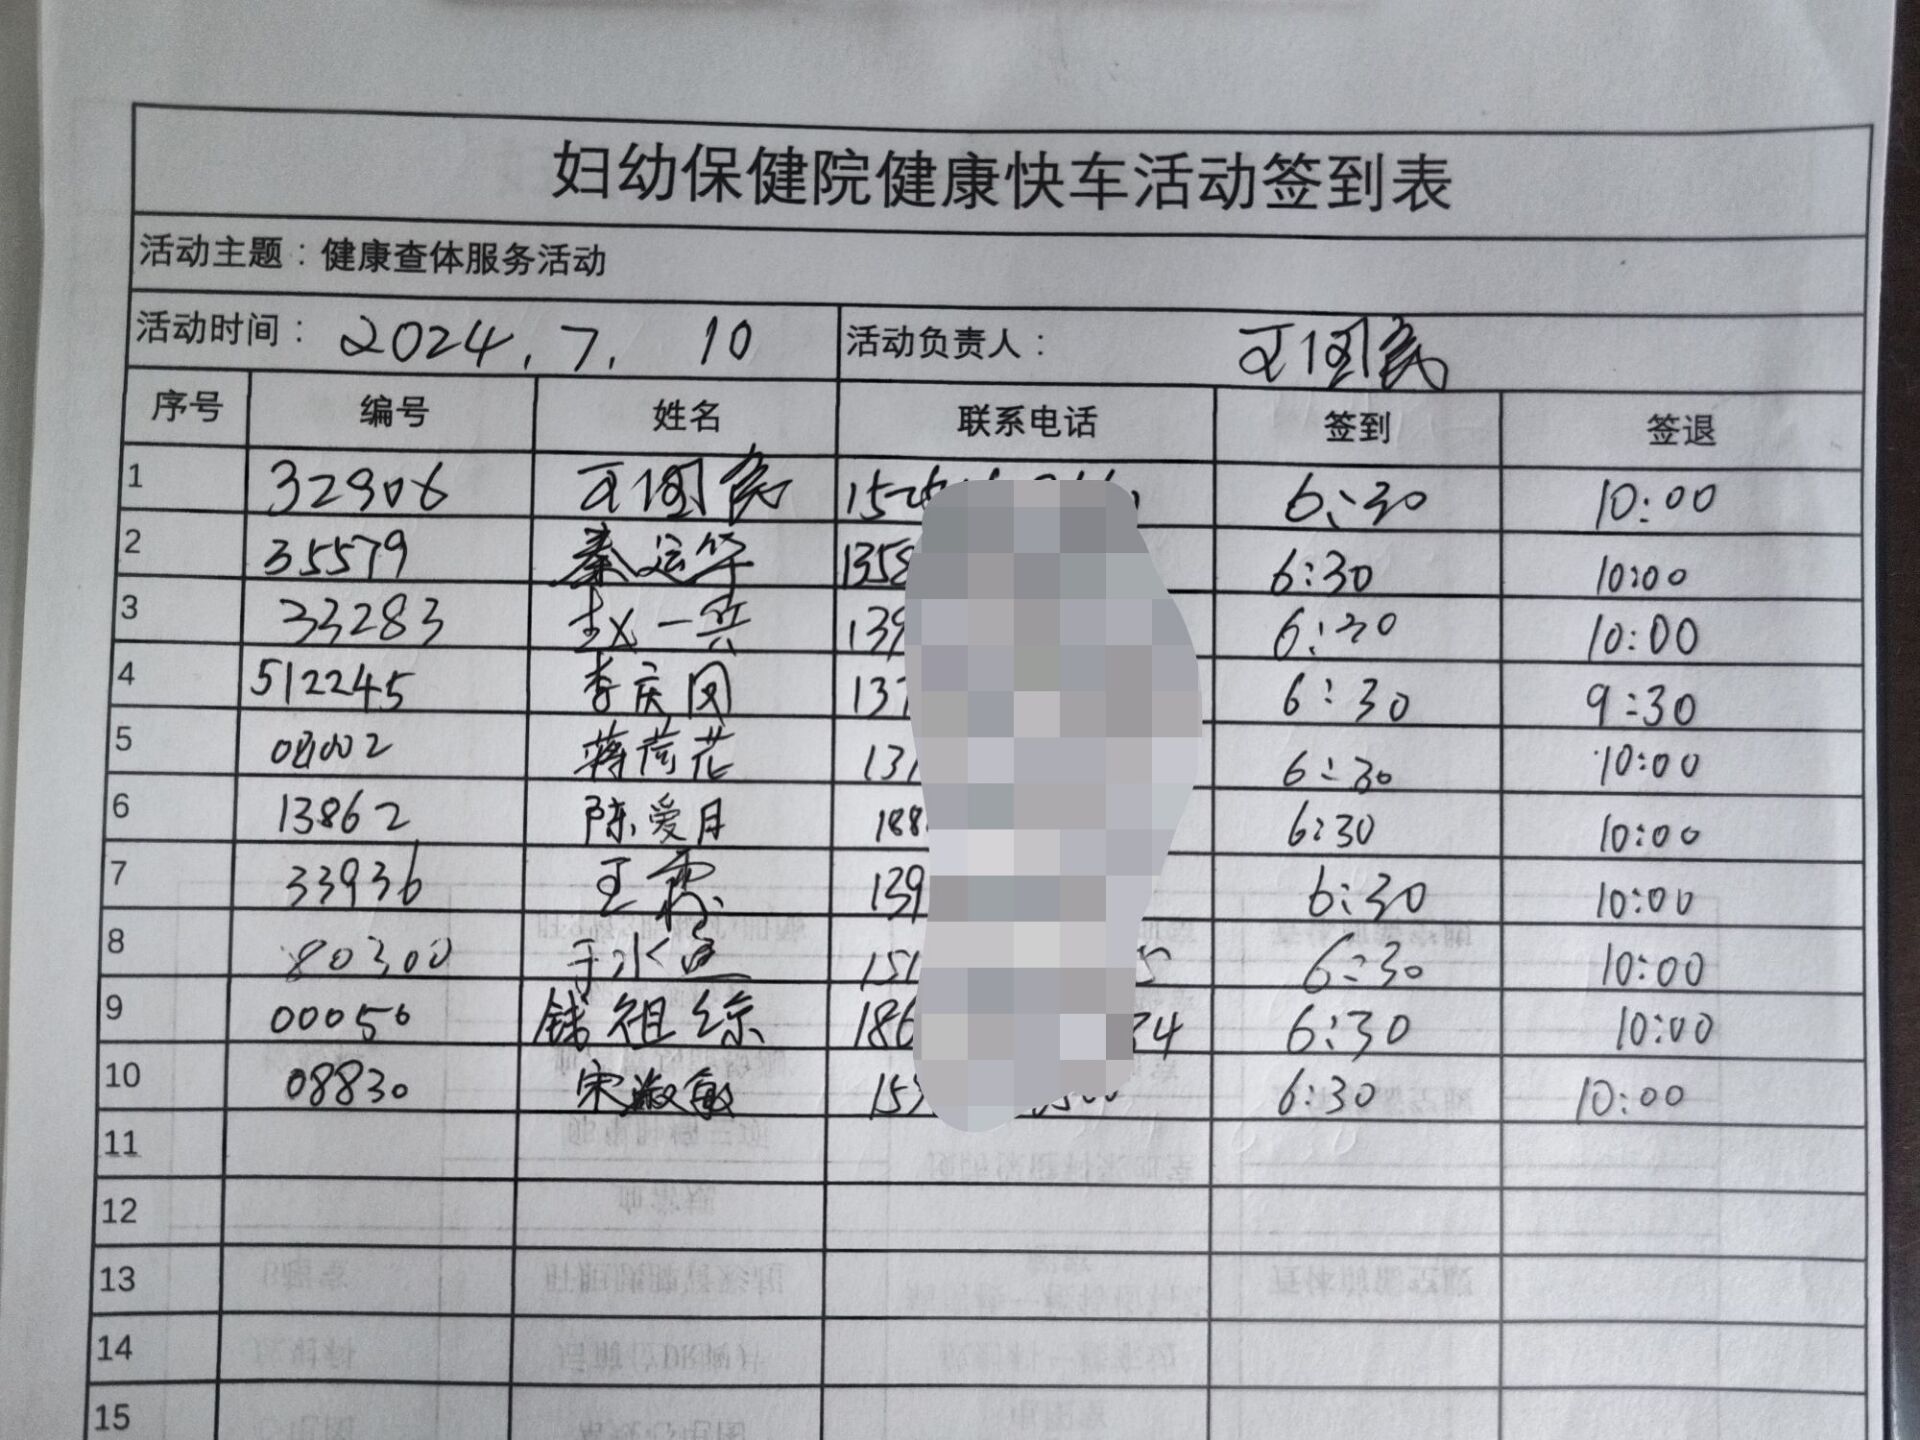 妇幼保健院健康快车活动签到表
活动主题：健康查体服务活动
活动时间： 2024.7. 10 活动负责人： 王国民
序号 编号 姓名 联系电话 签到 签退
1 32906 王国民 6:30 10:00
2 35579 秦运华 1358 6:30 10:00
3 33283 赵一兵 139 6:30 10:00
4 512245 李庆凤 137 6:30 9:30
5 蒋荷花 137 6:30 10:00
6 13862 陈爱月 188 6:30 10:00
7 33936 王霞 139 6:30 10:00
8 80300 于水 151 6:30 10:00
9 00050 钱祖综 186 34 6:30 10:00
10 08830 宋淑敏 15 6:30 10:00
11
12
13
14
15